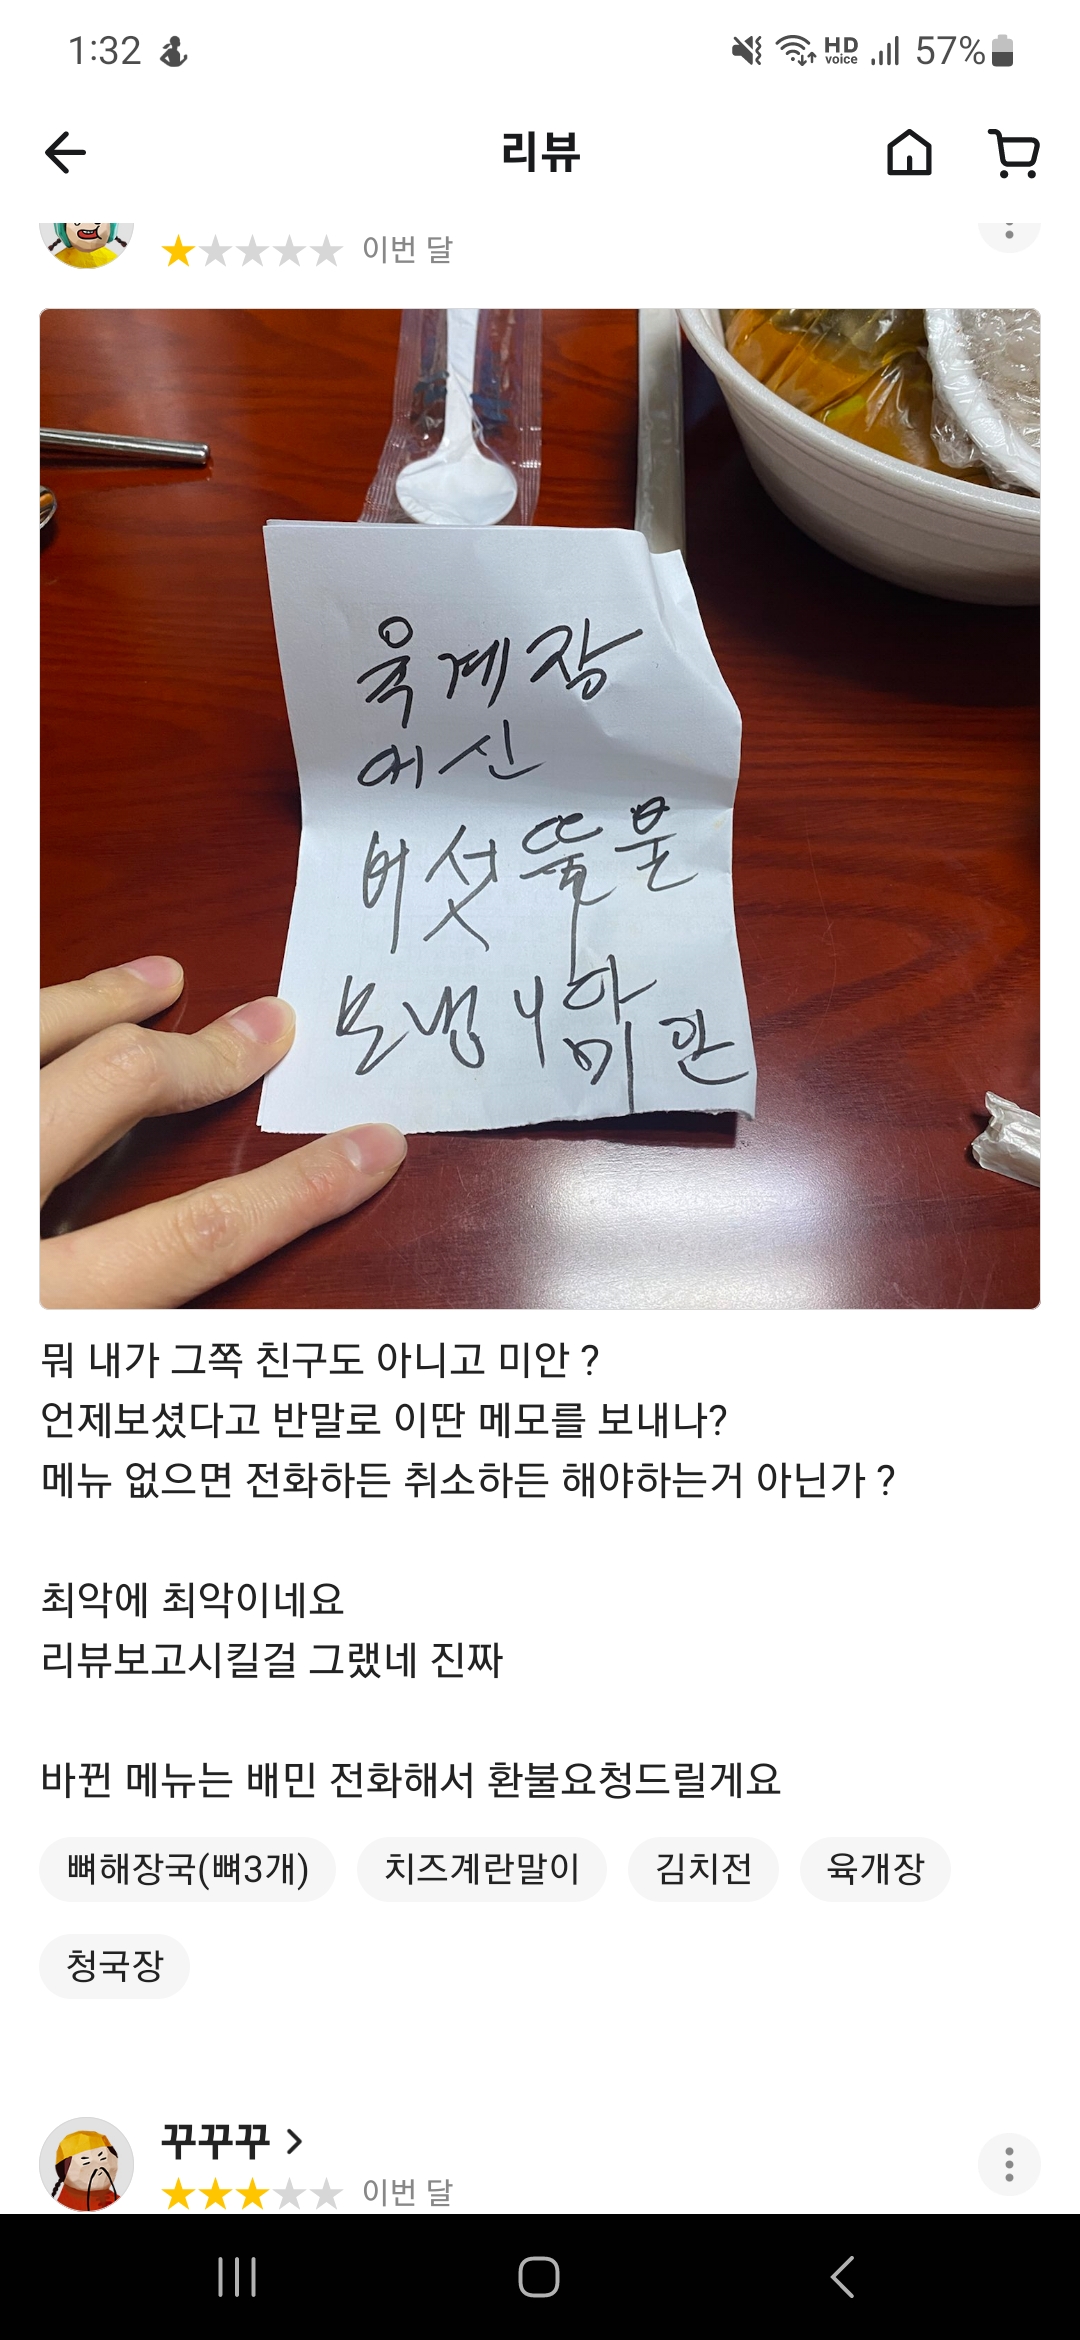 1:32 HD voice 57%
리뷰
이번 달
육계장
에신
버섯뚝불
보냉니다
미안
뭐 내가 그쪽 친구도 아니고 미안 ?
언제보셨다고 반말로 이딴 메모를 보내나?
메뉴 없으면 전화하든 취소하든 해야하는거 아닌가 ?
최악에 최악이네요
리뷰보고시킬걸 그랬네 진짜
바뀐 메뉴는 배민 전화해서 환불요청드릴게요
뼈해장국(뼈3개) 치즈계란말이 김치전 육개장
청국장
꾸꾸꾸
이번 달